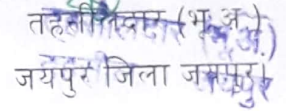 तहसीलदार (भू.अ.)
जयपुर जिला जयपुर।